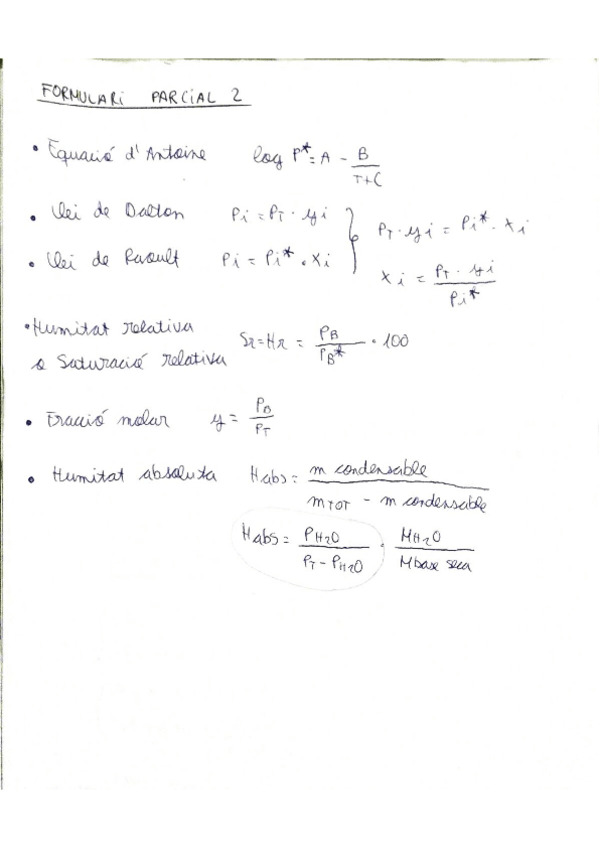 FORMULARI PARCIAL 2
• Equació d'Antoine log P* = A - B / T+C
• Llei de Dalton Pi = PT · yi
PT · yi = Pi* · xi
• Llei de Raoult Pi = Pi* · xi
xi = PT · yi / Pi*
• Humitat relativa
o Saturació relativa Sr = Hr = PB / PB* · 100
• Fracció molar y = PB / PT
• Humitat absoluta Habs = m condensable / mTOT - m condensable
Habs = PH2O / PT - PH2O · MH2O / Mbase seca